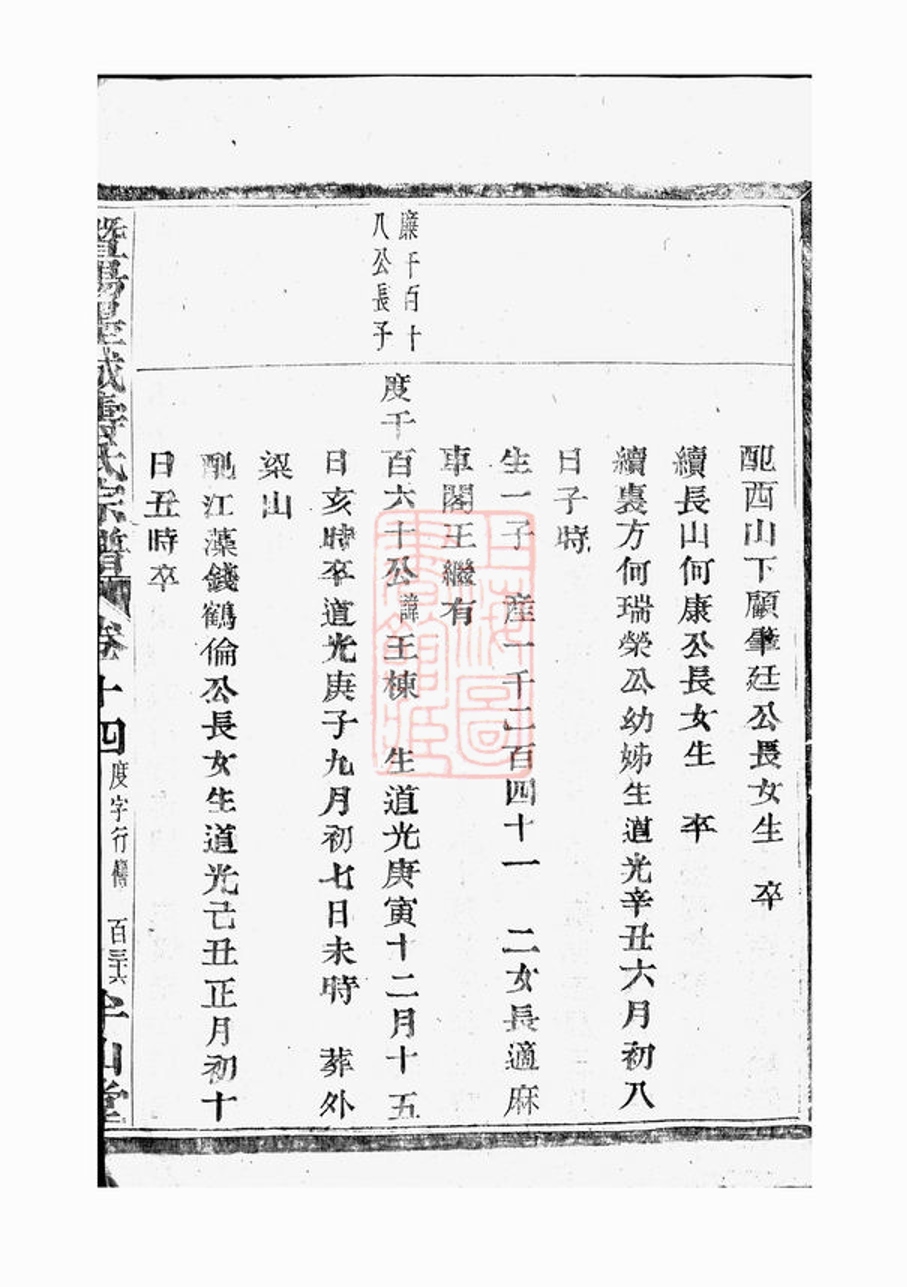 配西山下顧肇廷公長女生　卒
續長山何康公長女生　卒
續裏方何瑞榮公幼姊生道光辛丑六月初八
日子時
生一子　産一千二百四十一　二女長適麻
車閣王繼有
廉千百十
八公長子
度千百六十公諱王棟　生道光庚寅十二月十五
日亥時卒道光庚子九月初七日未時　葬外
梁山
配江藻錢鶴倫公長女生道光己丑正月初十
日丑時卒
暨陽 城 氏宗譜 卷十四 度字行傳 百三十六 堂
上海圖書館藏